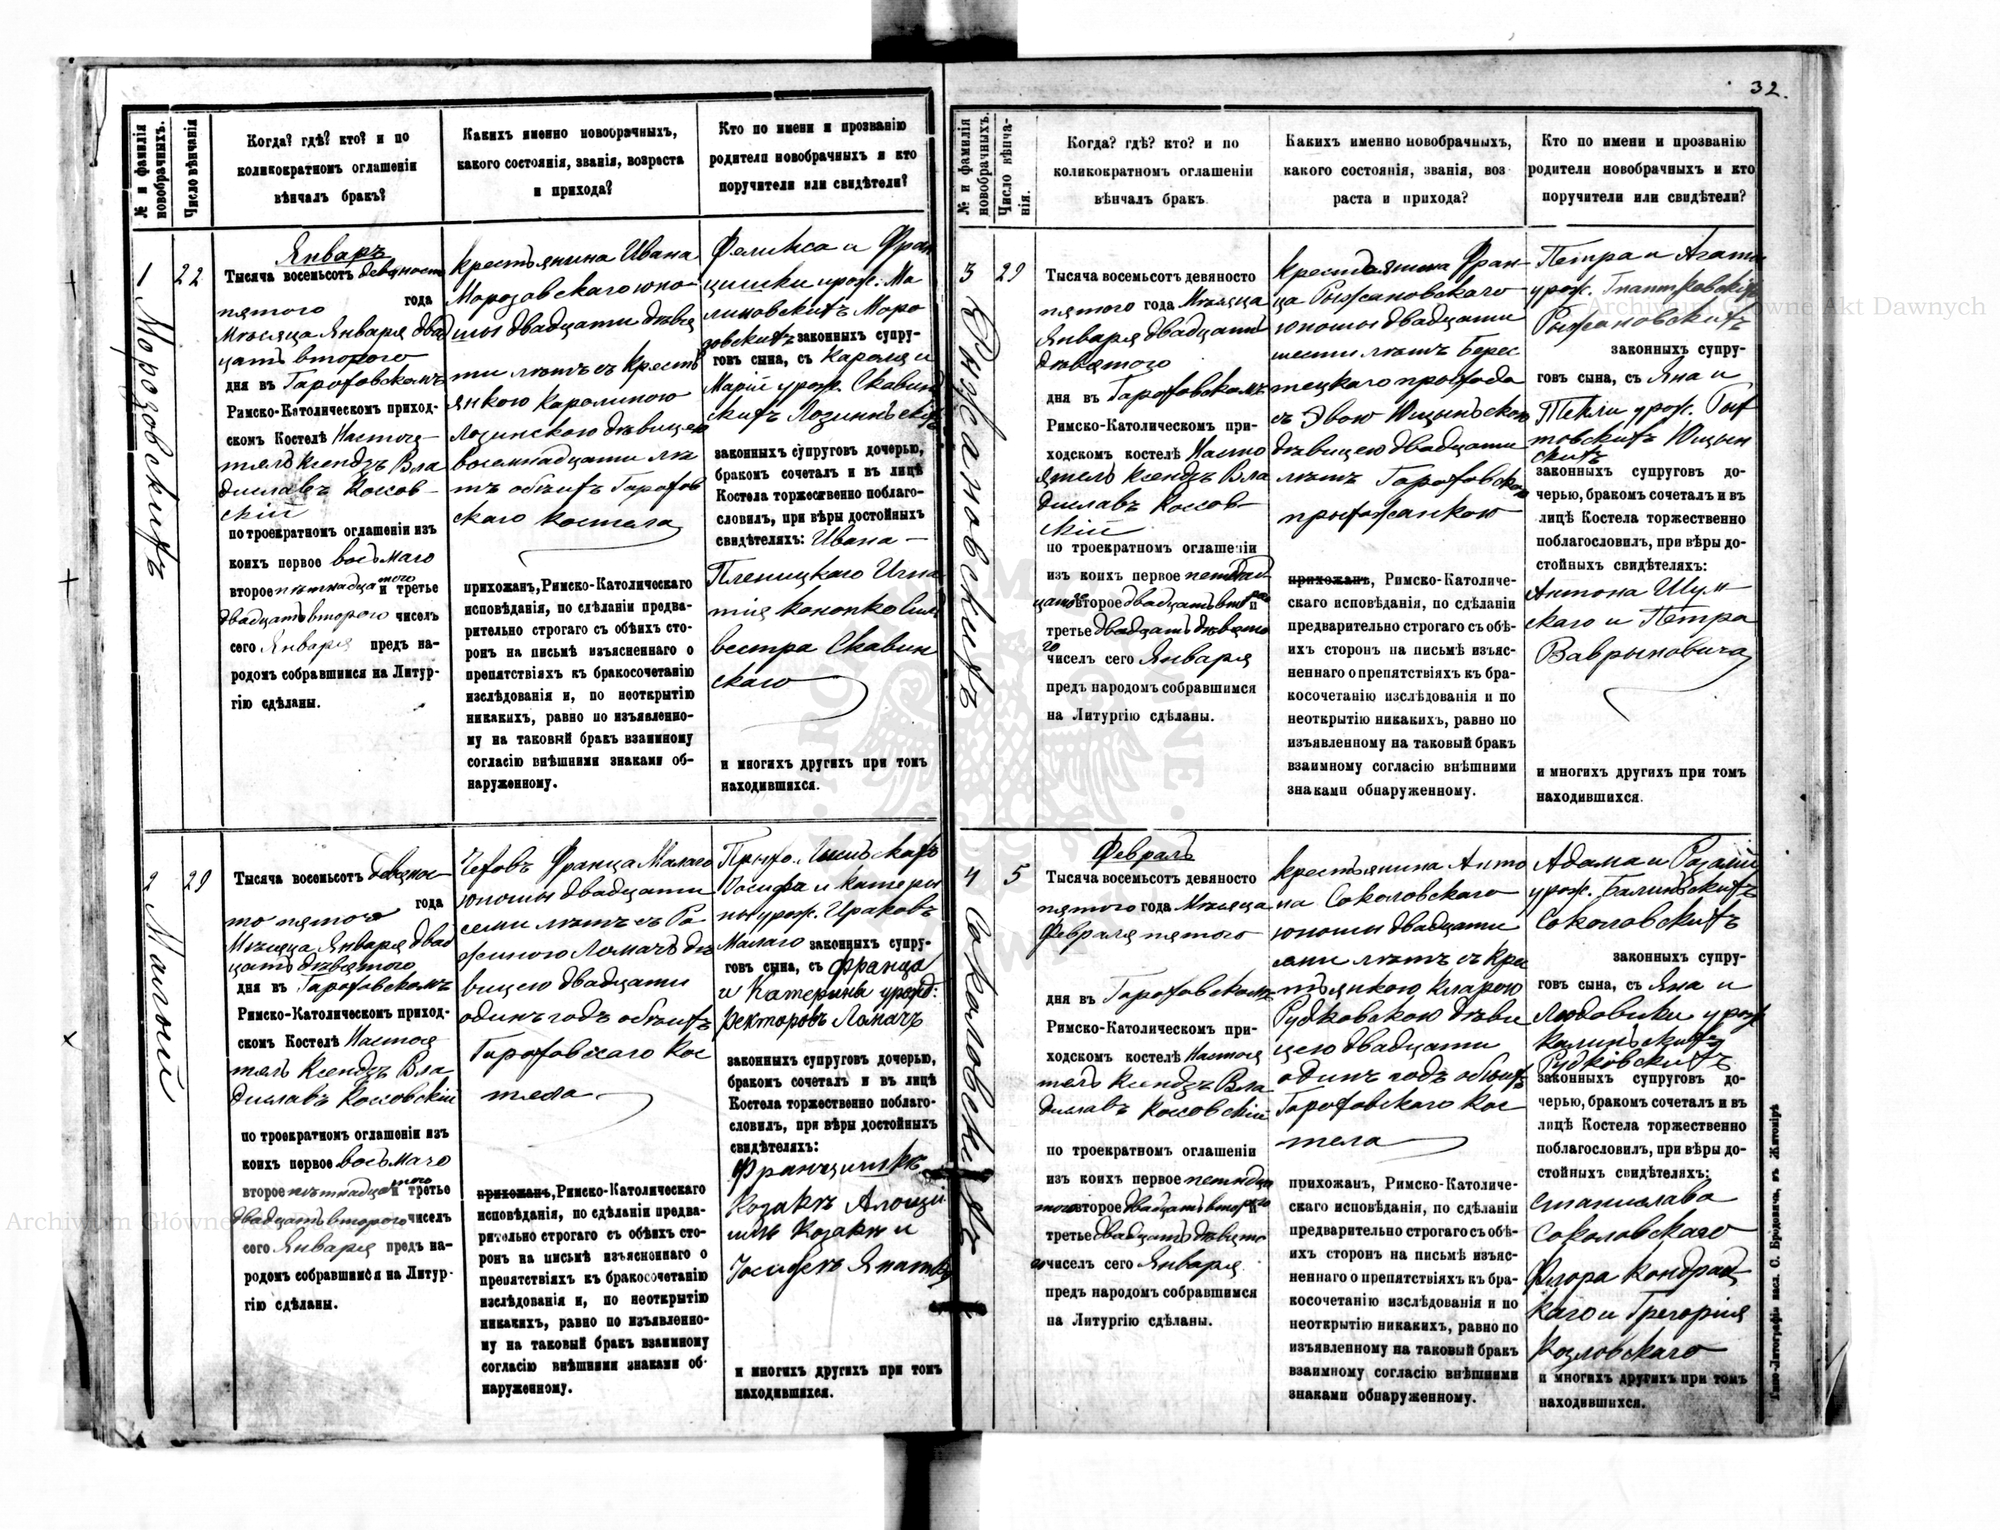 32.
№ и фамилія новобрачныхъ.
Число вѣнчанія
Когда? гдѣ? кто? и по
коликократномъ оглашеніи
вѣнчалъ бракъ?
Какихъ именно новобрачныхъ,
какого состоянія, званія, возраста
и прихода?
Кто по имени и прозванію
родители новобрачныхъ и кто
поручители или свидѣтели?
1
Морозовскихъ
22
Январь
Тысяча восемьсотъ девяносто
пятого года
Мѣсяца Января двад
цать второго
дня въ Гороховскомъ
Римско-Католическомъ приход-
скомъ Костелѣ Настоя-
тель Ксендзъ Вла
диславъ Коссов-
скій
по троекратномъ оглашеніи изъ
коихъ первое восьмаго
второе пятнадцатого и третье
двадцать второго чиселъ
сего Января предъ на-
родомъ собравшимся на Литур-
гію сдѣланы.
Крестьянина Ивана
Морозовскаго юно-
шы двадцати девя
ти лѣтъ съ Кресть
янкою Каролиною
Лозинскою дѣвицею
восемнадцати лѣ
тъ обоихъ Горохов
скаго Костела
прихожанъ, Римско-Католическаго
исповѣданія, по сдѣланіи предва-
рительно строгаго съ обѣихъ сто-
ронъ на письмѣ изъясненнаго о
препятствіяхъ къ бракосочетанію
изслѣдованія и, по неоткрытію
никакихъ, равно по изъявленно-
му на таковый бракъ взаимному
согласію внѣшними знаками об-
наруженному.
Феликса и Фран
цишки урож. Ма
линовскихъ Моро
зовскихъ законныхъ супру-
говъ сына, съ Кароля и
Маріи урож. Скавин
скихъ Лозинскихъ
законныхъ супруговъ дочерью,
бракомъ сочеталъ и въ лицѣ
Костела торжественно поблаго-
словилъ, при вѣры достойныхъ
свидѣтеляхъ: Ивана
Пленицкаго Игна
тія Конопко Силь
вестра Скавин
скаго
и многихъ другихъ при томъ
находившихся.
2
Малогой
29
Тысяча восемьсотъ девяно-
сто пятого года
Мѣсяца Января двад
цать девятого
дня въ Гороховскомъ
Римско-Католическомъ приход-
скомъ Костелѣ Настоя
тель Ксендзъ Вла
диславъ Коссовскій
по троекратномъ оглашеніи изъ
коихъ первое восьмаго
второе пятнадцатого и третье
двадцать второго чиселъ
сего Января предъ на-
родомъ собравшимся на Литур-
гію сдѣланы.
Чеховъ Франца Малаго
юношы двадцати
семи лѣтъ съ Ро
жиною Ломачъ дѣ
вицею двадцати
одинъ годъ обоихъ
Гороховскаго Кос
тела
прихожанъ, Римско-Католическаго
исповѣданія, по сдѣланіи предва-
рительно строгаго съ обѣихъ сто-
ронъ на письмѣ изъясненнаго о
препятствіяхъ къ бракосочетанію
изслѣдованія и, по неоткрытію
никакихъ, равно по изъявленно-
му на таковый бракъ взаимному
согласію внѣшними знаками об-
наруженному.
Іосифа и Катеры
ны урож. Ираковъ
Малаго законныхъ супру-
говъ сына, съ Франца
и Катерины урожд:
Ректоровъ Ломачъ
законныхъ супруговъ дочерью,
бракомъ сочеталъ и въ лицѣ
Костела торжественно поблаго-
словилъ, при вѣры достойныхъ
свидѣтеляхъ:
Францишкѣ
Козакъ Алоизі
Козакъ и
Іосифѣ
и многихъ другихъ при томъ
находившихся.
№ и фамилія новобрачныхъ.
Число вѣнча-
нія.
Когда? гдѣ? кто? и по
коликократномъ оглашеніи
вѣнчалъ бракъ
Какихъ именно новобрачныхъ,
какого состоянія, званія, воз
раста и прихода?
Кто по имени и прозванію
родители новобрачныхъ и кто
поручители или свидѣтели?
3
Рыжановскихъ
29
Тысяча восемьсотъ девяносто
пятого года Мѣсяца
Января двадцать
девятого
дня въ Гороховскомъ
Римско-Католическомъ при-
ходскомъ костелѣ Насто
ятель Ксендзъ Вла
диславъ Коссов-
скій
по троекратномъ оглашеніи
изъ коихъ первое пятнад
цатое второе двадцать второго и
третье двадцать девято
го чиселъ сего Января
предъ народомъ собравшимся
на Литургію сдѣланы.
Крестьянина Фран-
ца Рыжановскаго
юношы двадцати
шести лѣтъ Берес
тецкаго прыхода
съ Эвою Ющынскою
дѣвицею двадцати
лѣтъ Гороховскою
прыхожанкою
прихожанъ, Римско-Католиче-
скаго исповѣданія, по сдѣланіи
предварительно строгаго съ обѣ-
ихъ сторонъ на письмѣ изъяс-
неннаго о препятствіяхъ къ бра-
косочетанію изслѣдованія и по
неоткрытію никакихъ, равно по
изъявленному на таковый бракъ
взаимному согласію внѣшними
знаками обнаруженному.
Петра и Агаты
урож. Гнатковскихъ
Рыжановскихъ
законныхъ супру-
говъ сына, съ Яна и
Теклі урож. Рых
товскихъ Ющын
скихъ
законныхъ супруговъ до-
черью, бракомъ сочеталъ и въ
лицѣ Костела торжественно
поблагословилъ, при вѣры до-
стойныхъ свидѣтеляхъ:
Антона Шум
скаго и Петра
Ваврыновича
и многихъ другихъ при томъ
находившихся.
4
Соколовскихъ
5
Февраль
Тысяча восемьсотъ девяносто
пятого года Мѣсяца
Февраля пятого
дня въ Гороховскомъ
Римско-Католическомъ при-
ходскомъ костелѣ Настоя
тель Ксендзъ Вла
диславъ Коссовскій
по троекратномъ оглашеніи
изъ коихъ первое пятнадца
того второе двадцать второго и
третье двадцать девято
го чиселъ сего Января
предъ народомъ собравшимся
на Литургію сдѣланы.
Крестьянина Анто
на Соколовскаго
юношы двадцати
семи лѣтъ съ Крес
тьянкою Кларою
Рудковскою дѣви
цею двадцати
одинъ годъ обоихъ
Гороховскаго Кос
тела
прихожанъ, Римско-Католиче-
скаго исповѣданія, по сдѣланіи
предварительно строгаго съ обѣ-
ихъ сторонъ на письмѣ изъяс-
неннаго о препятствіяхъ къ бра-
косочетанію изслѣдованія и по
неоткрытію никакихъ, равно по
изъявленному на таковый бракъ
взаимному согласію внѣшними
знаками обнаруженному.
Адама и Розаліи
урож. Балинскихъ
Соколовскихъ
законныхъ супру-
говъ сына, съ Яна и
Людовики урож
Калинскихъ
Рудковскихъ
законныхъ супруговъ до-
черью, бракомъ сочеталъ и въ
лицѣ Костела торжественно
поблагословилъ, при вѣры до-
стойныхъ свидѣтеляхъ:
Станислава
Соколовскаго
Флора Кондрац
каго и Грегорія
Козловскаго
и многихъ другихъ при томъ
находившихся.
Типо-Литографія насл. С. Бродовича, въ Житомірѣ
Archiwum Główne Akt Dawnych
Archiwum Główne Akt Dawnych